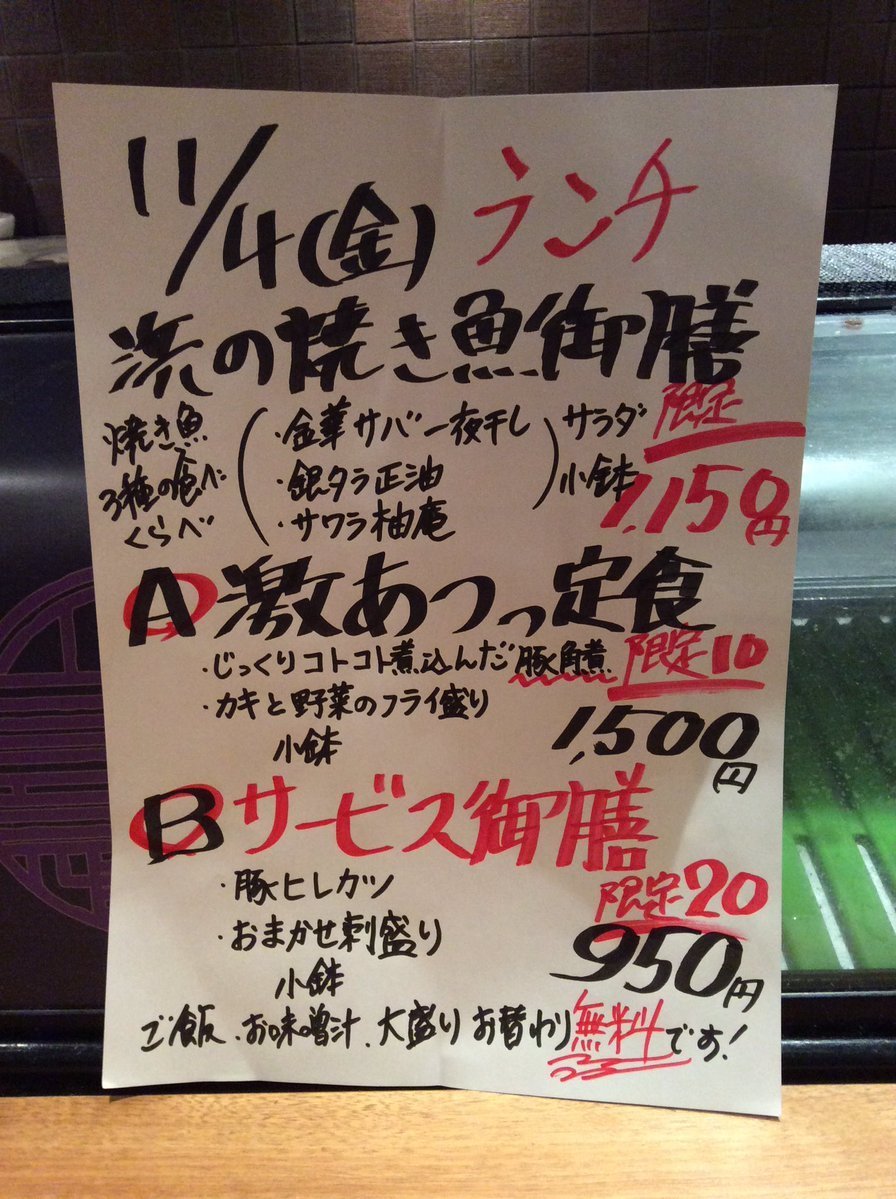 11/4(金) ランチ
浜の焼き魚御膳
限定
焼き魚
3種の食べ
くらべ
・金華サバ一夜干し
・銀タラ正油
・サワラ柚庵
サラダ
小鉢
1,150円
A 激あつっ定食
・じっくりコトコト煮込んだ豚角煮 限定10
・カキと野菜のフライ盛り
小鉢
1,500円
B サービス御膳
・豚ヒレカツ
限定20
・おまかせ刺盛り
小鉢
950円
ご飯、お味噌汁、大盛りお替わり無料です!